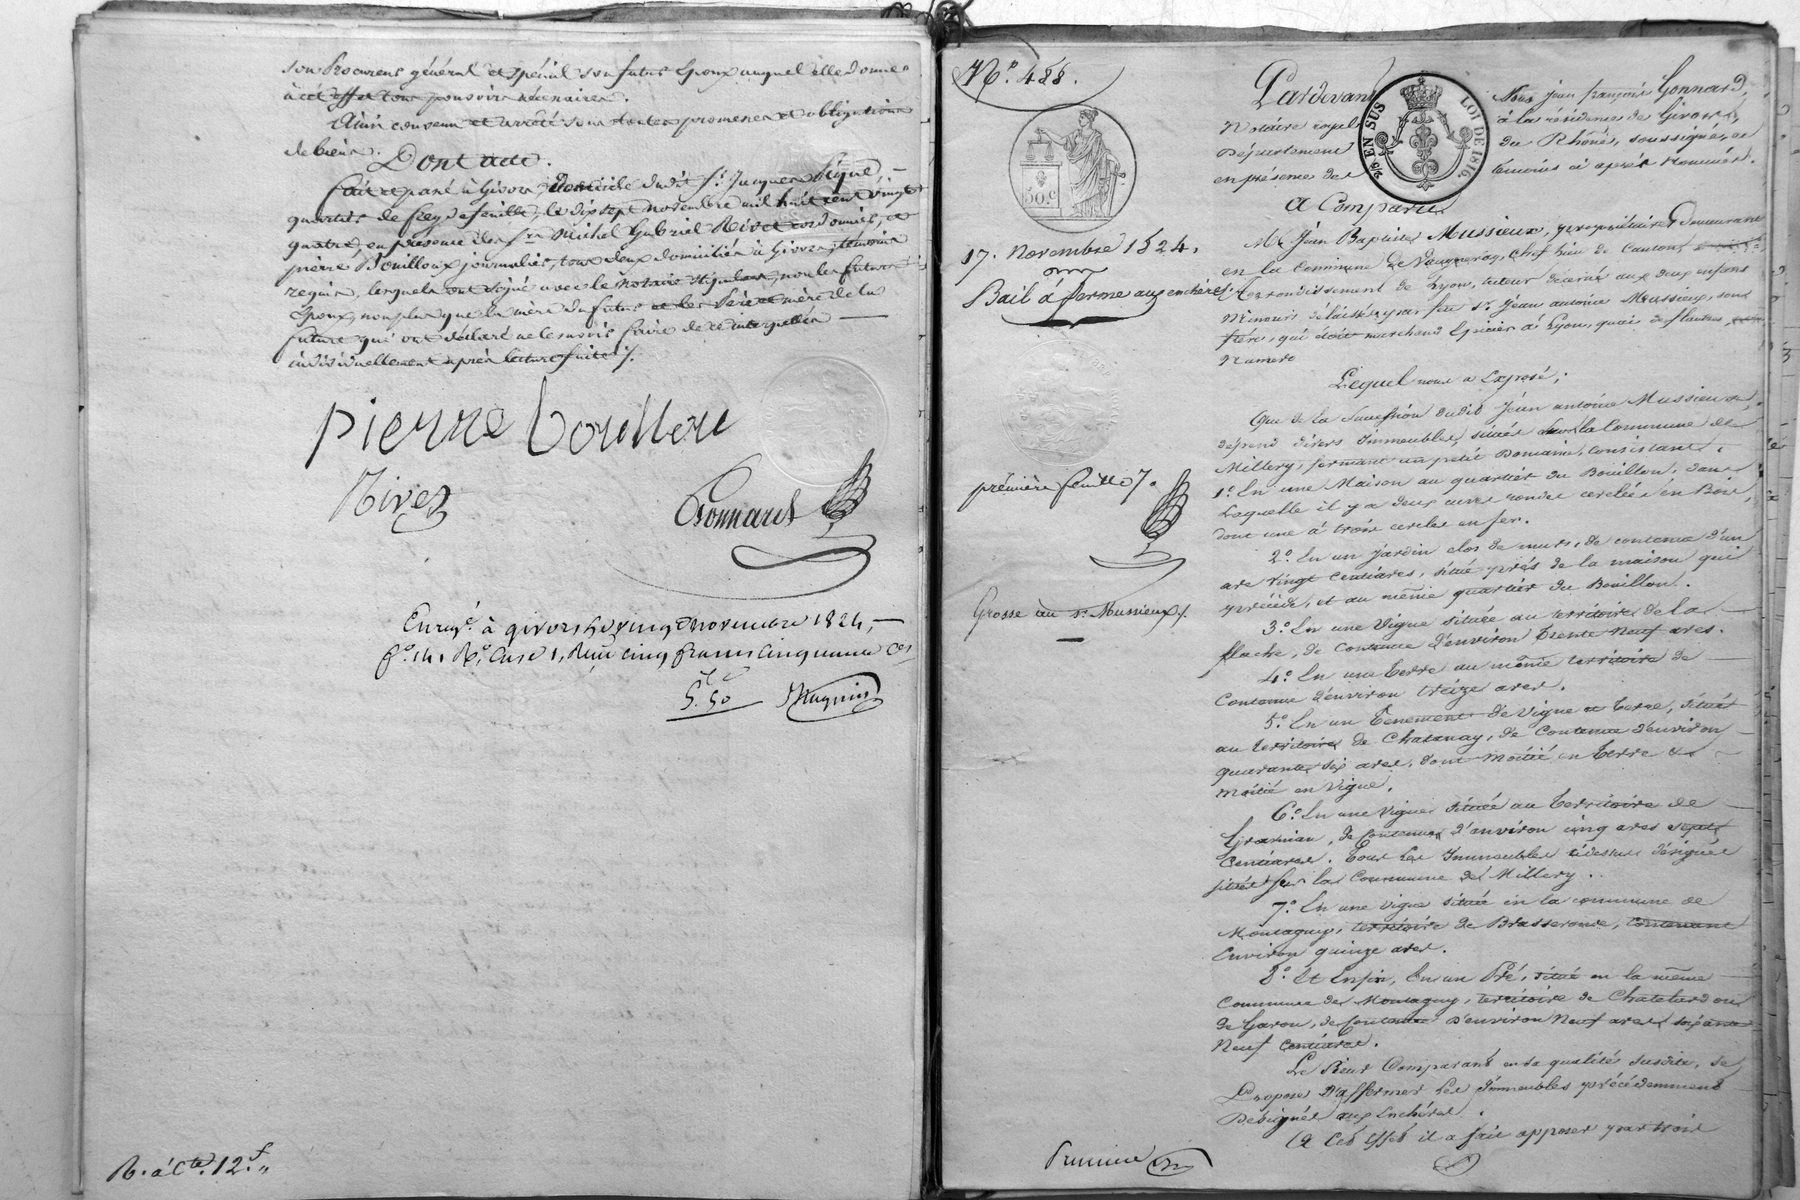 son Procureur général et spécial son futur Epoux auquel elle donne
à cet effet tous pouvoirs nécessaires.
Ainsi convenu et arrêté sous toutes promesses et obligations
de biens.
Dont acte.
fait et passé à Givors domicile dudit Sr. Jacques
quartier de, le dix sept novembre mil huit cent vingt
quatre, en présence des srs Michel Gabriel Rivet cordonnier, et
pierre Bouilloux journalier, tous deux domiciliés à Givors, témoins
requis, lesquels ont signé avec le notaire, non les futurs
Epoux, non plus que la mère du futur et les Père et mère de la
future qui ont déclaré ne le savoir faire de ce interpellés
individuellement après lecture faite ./.
pierre bouillou
Rivet
Gonnard
Enregé. à givors le vingt novembre 1824,
fo. 141 Ro. Case 1, Reçu cinq francs cinquante Ces
5. 50
R. à Cte. 12. f "
No. 488.
50. C
17. Novembre 1824.
Bail à ferme aux enchères
première feuille ./.
Grosse au Sr. Mussieux ./.
Première
2/5 EN SUS
LOI DE 1816
Pardevant Nous jean françois Gonnard,
Notaire royal à la résidence de Givors,
Département du Rhône, soussigné, et
en présence des témoins ci après nommés.
A Comparu
Mr. Jean Baptiste Mussieux, propriétaire, demeurant
en la Commune de Vaugneray, chef lieu de Canton,
arrondissement de Lyon, tuteur décerné aux deux enfants
Mineurs délaissés par feu Sr. Jean antoine Mussieux, son
frère, qui étoit marchand Epicier à Lyon, quai de flandres,
Numéro
Lequel nous a Exposé;
Que de la Succession dudit Jean antoine Mussieux,
dépend divers Immeubles, situés sur la Commune de
Millery, formant un petit Domaine, consistant.
1o. En une Maison au quartier du Bouillon, dans
Laquelle il y a deux cuves rondes cerclées en Bois,
dont une à trois cercles en fer.
2o. En un jardin clos de murs, de contenue d'un
are vingt centiares, situé près de la maison qui
précède, et au même quartier du Bouillon.
3o. En une Vigne située au territoire de la
flache, de Contenue d'environ trente Neuf ares.
4o. En une terre au même territoire de
Contenue d'environ treize ares.
5o. En un Tenement de Vigne et terre, situé
au territoire de Chatanay, de Contenue d'environ
quarante six ares, dont moitié en terre et
moitié en Vigne.
6o. En une vigne située au territoire de
, de Contenue d'environ cinq ares sept
Centiares. Tous les Immeubles cidessus désignés
situés sur la Commune de Millery.
7o. En une vigne située en la commune de
Montagny, territoire de Brasseronde, contenant
Environ quinze ares.
8o. Et Enfin, En un Pré, situé en la même
Commune de Montagny, territoire de Chatelard ou
de Garon, de Contenue d'environ Neuf ares soixante
Neuf Centiares.
Le Sieur Comparant en sa qualité susdite, se
Propose d'affermer les Immeubles précédemment
Désignés aux Enchères.
(A Cet Effet il a fait apposer par trois